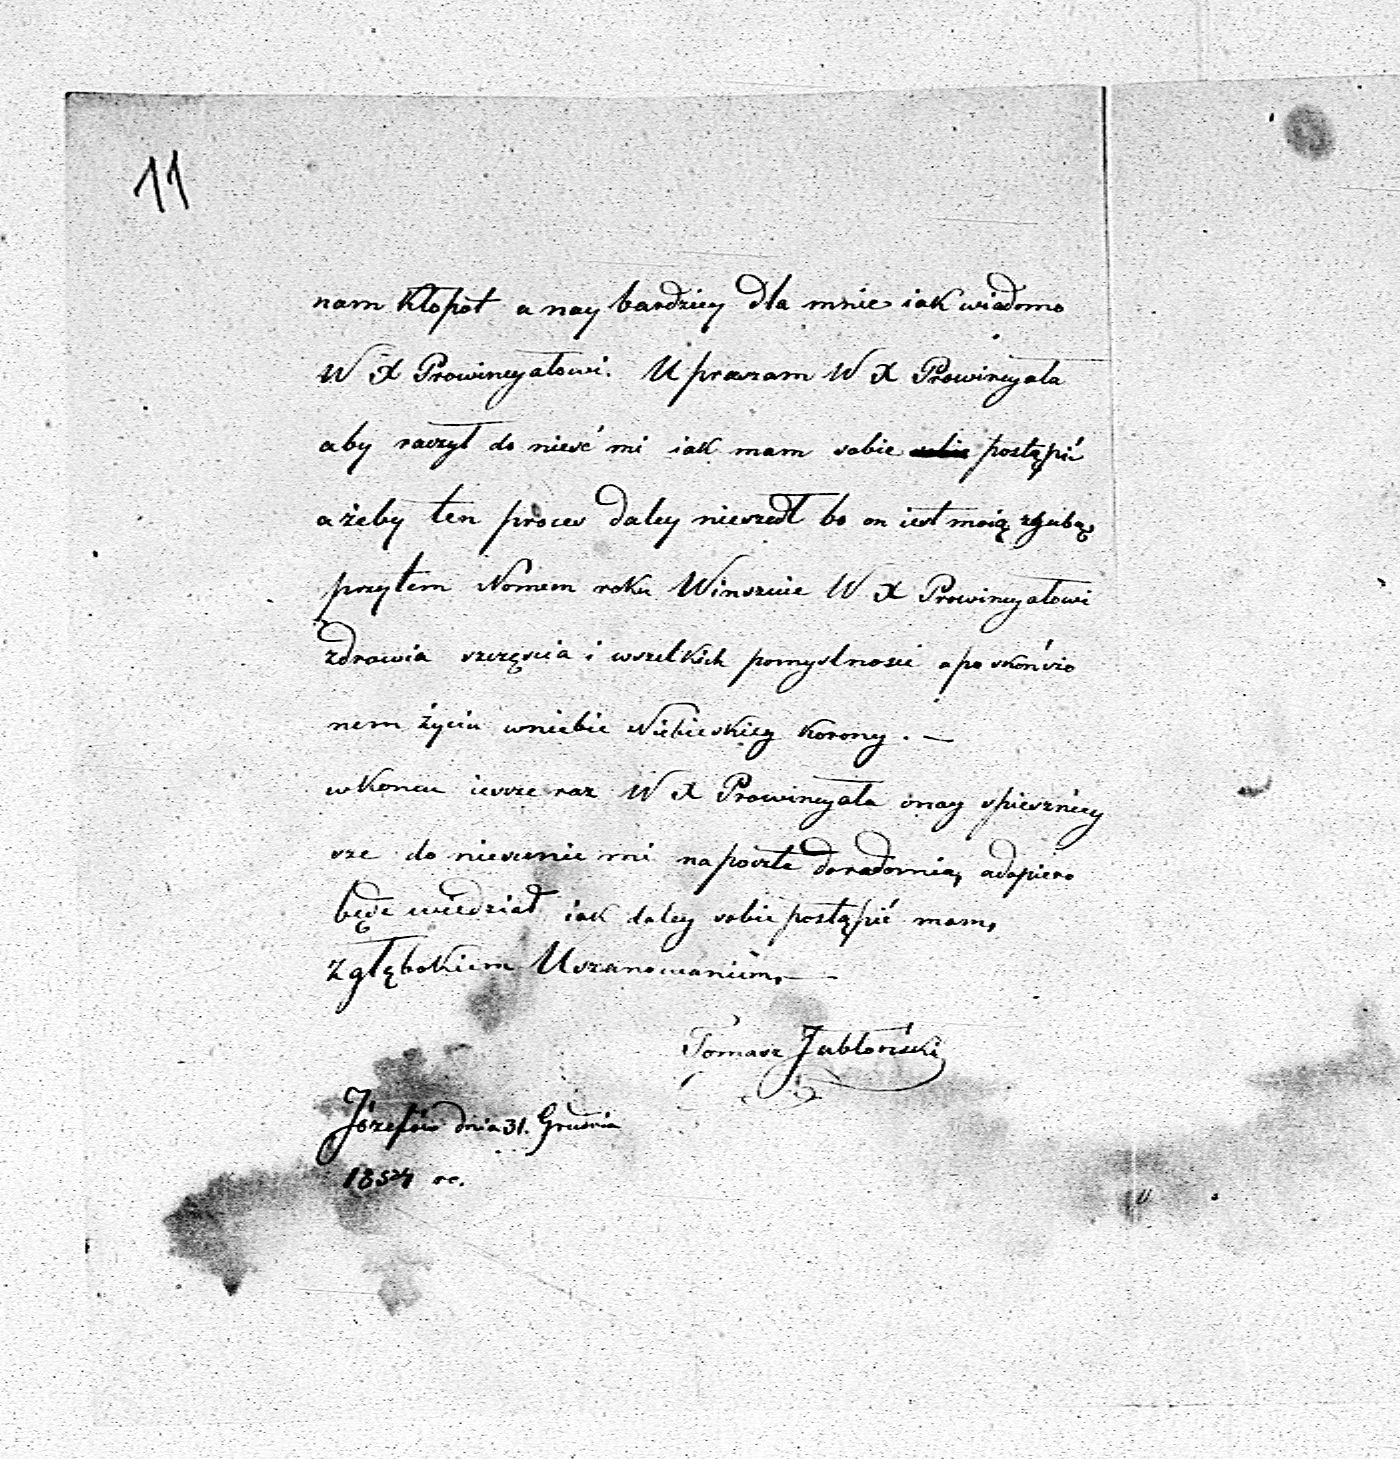 11
nam kłopot a nay bardziey dla mnie iak wiadomo
W X Prowincyałowi. Upraszam W X Prowincyała
aby raczył do nieść mi iak mam sobie postąpić
a żeby ten proces daley nieszedł bo on iest moią zgubą,
przytem Nowem roku Winszuie W X Prowincyałowi
zdrowia szczęscia i wszelkich pomyslnosci a po skończo
nem życiu wniebie Niebieskiey korony. —
wkoncu iesze raz W X Prowincyała onay spieszniey
sze do niesienie mi na poszte doradomia, adopiero
będe wiedział iak daley sobie postąpić mam,
Z głębokiem Uszanowaniem, —
Tomasz Jabłoński
Józefów dnia 31. Grudnia
1854 r.